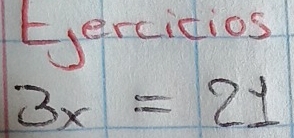 Ejercicios
3x = 21